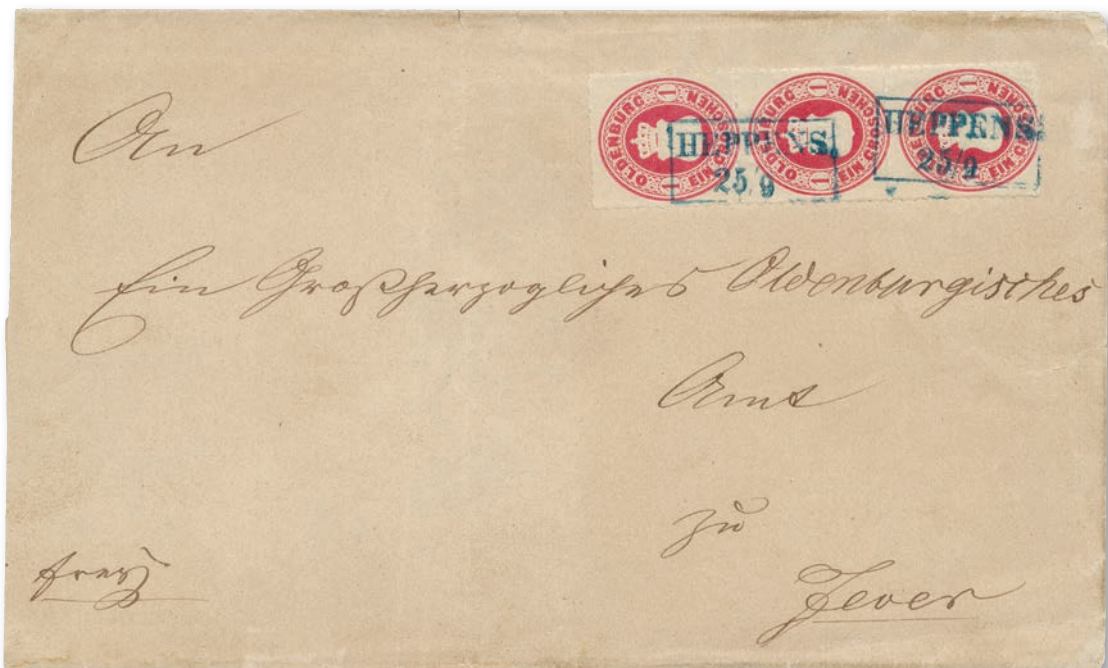 OLDENBURG 1 EIN GROSCHEN 1
OLDENBURG 1 EIN GROSCHEN 1
OLDENBURG 1 EIN GROSCHEN
HEPPENS.
25/9
HEPPENS.
25/9
An
Ein Großherzogliches Oldenburgisches
Amt
zu
Jever